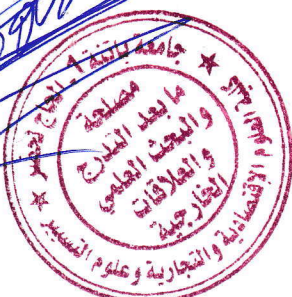 جامعة باتنة 1 - الحاج لخضر
كلية العلوم الاقتصادية والتجارية وعلوم التسيير
مصلحة
ما بعد التدرج
والبحث العلمي
والعلاقات
الخارجية